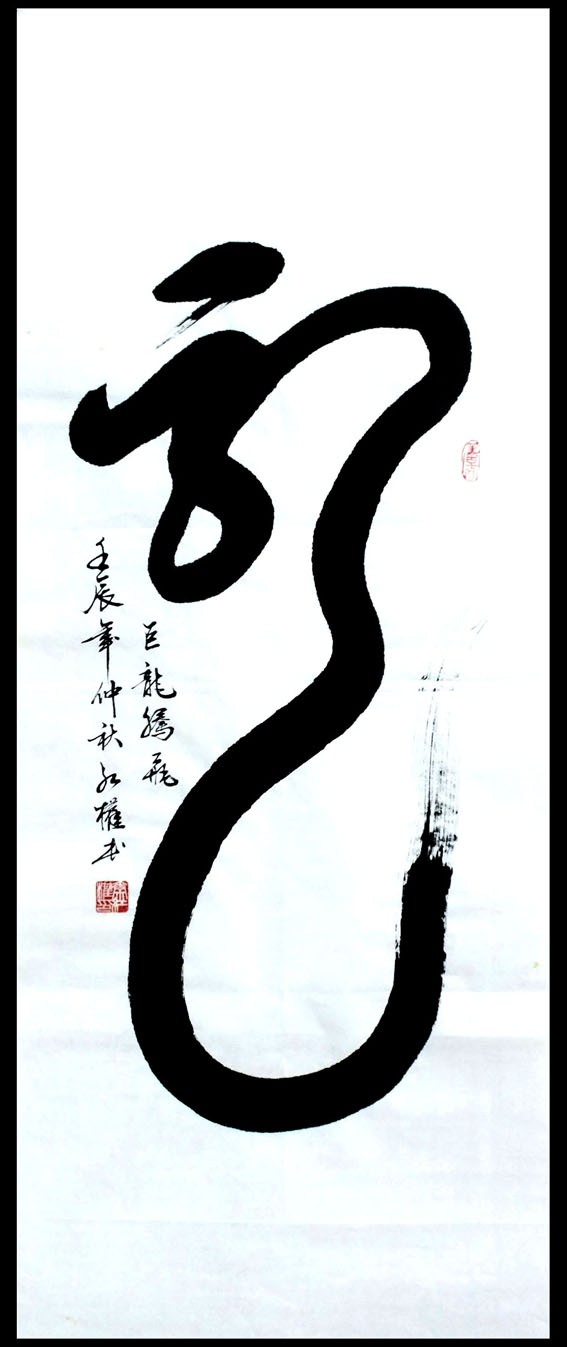 龍
巨龍騰飛
壬辰年仲秋永權书